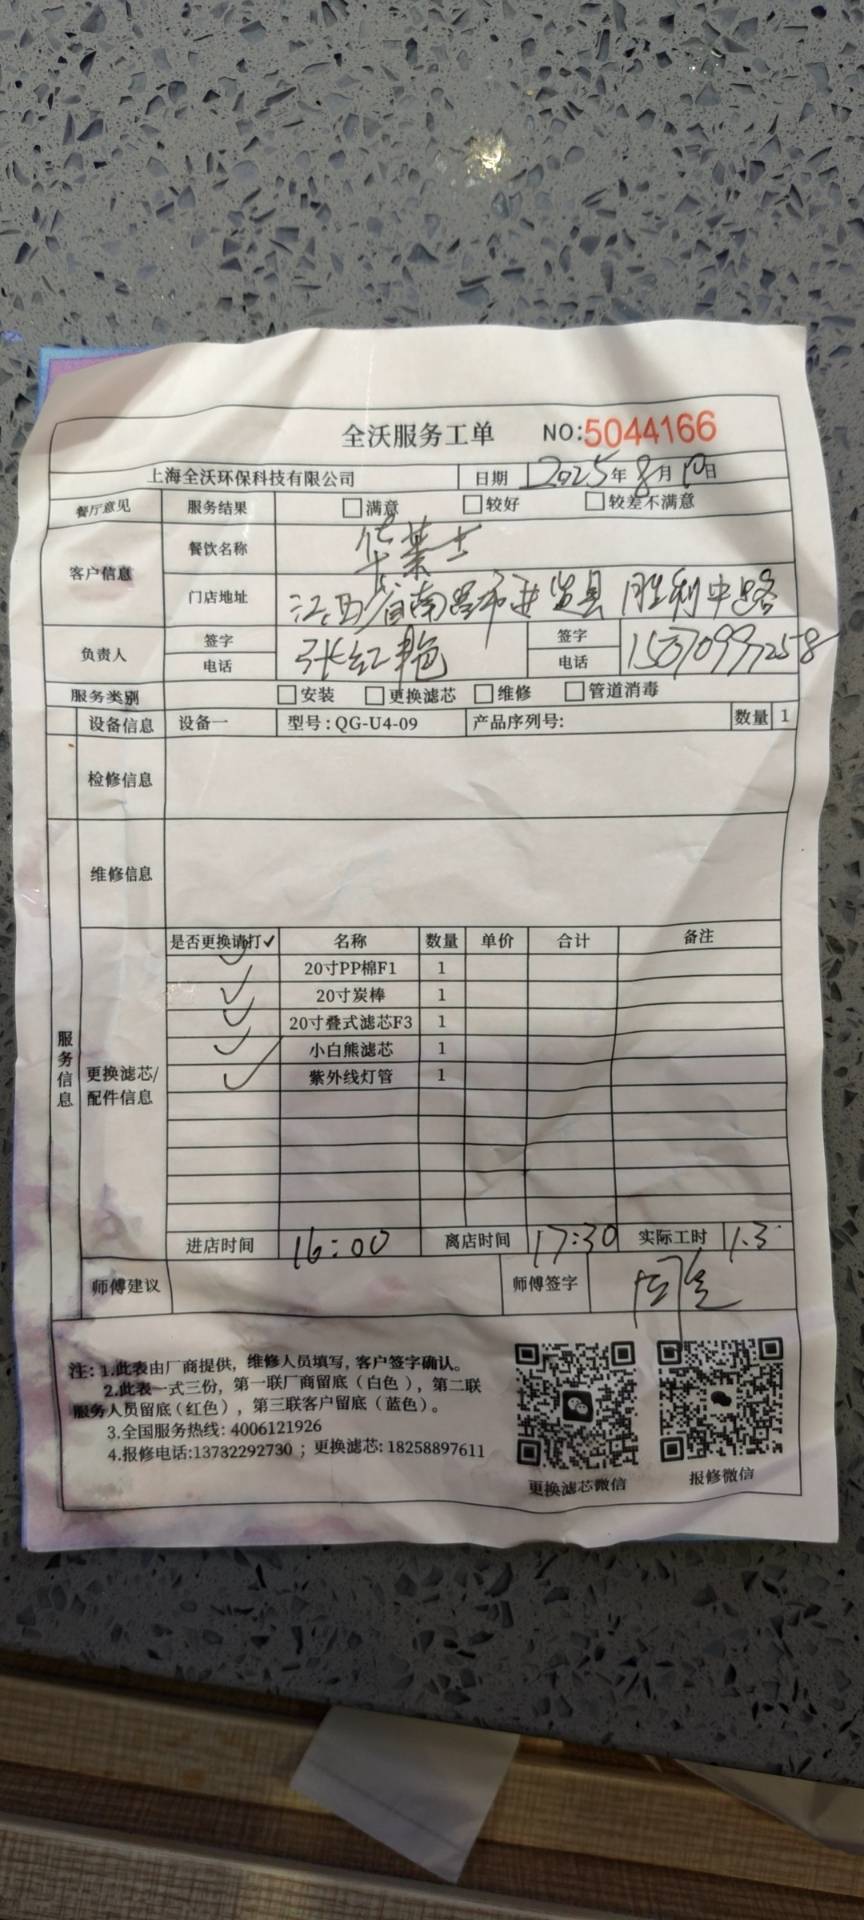 全沃服务工单 NO:5044166
上海全沃环保科技有限公司 日期 2025年8月10日
餐厅意见 服务结果 □满意 □较好 □较差不满意
客户信息 餐饮名称 华莱士
门店地址 江西省南昌市进贤县胜利中路
负责人 签字 张红艳 签字
电话 电话 15070997258
服务类别 □安装 □更换滤芯 □维修 □管道消毒
设备信息 设备一 型号:QG-U4-09 产品序列号: 数量 1
检修信息
维修信息
服务信息
更换滤芯/配件信息
是否更换请打✓ 名称 数量 单价 合计 备注
✓ 20寸PP棉F1 1
✓ 20寸炭棒 1
✓ 20寸叠式滤芯F3 1
✓ 小白熊滤芯 1
✓ 紫外线灯管 1
进店时间 16:00 离店时间 17:30 实际工时 1.3
师傅建议 师傅签字
注: 1.此表由厂商提供，维修人员填写, 客户签字确认。
2.此表一式三份，第一联厂商留底（白色），第二联
服务人员留底(红色)，第三联客户留底（蓝色）。
3.全国服务热线: 4006121926
4.报修电话:13732292730 ; 更换滤芯: 18258897611
更换滤芯微信 报修微信